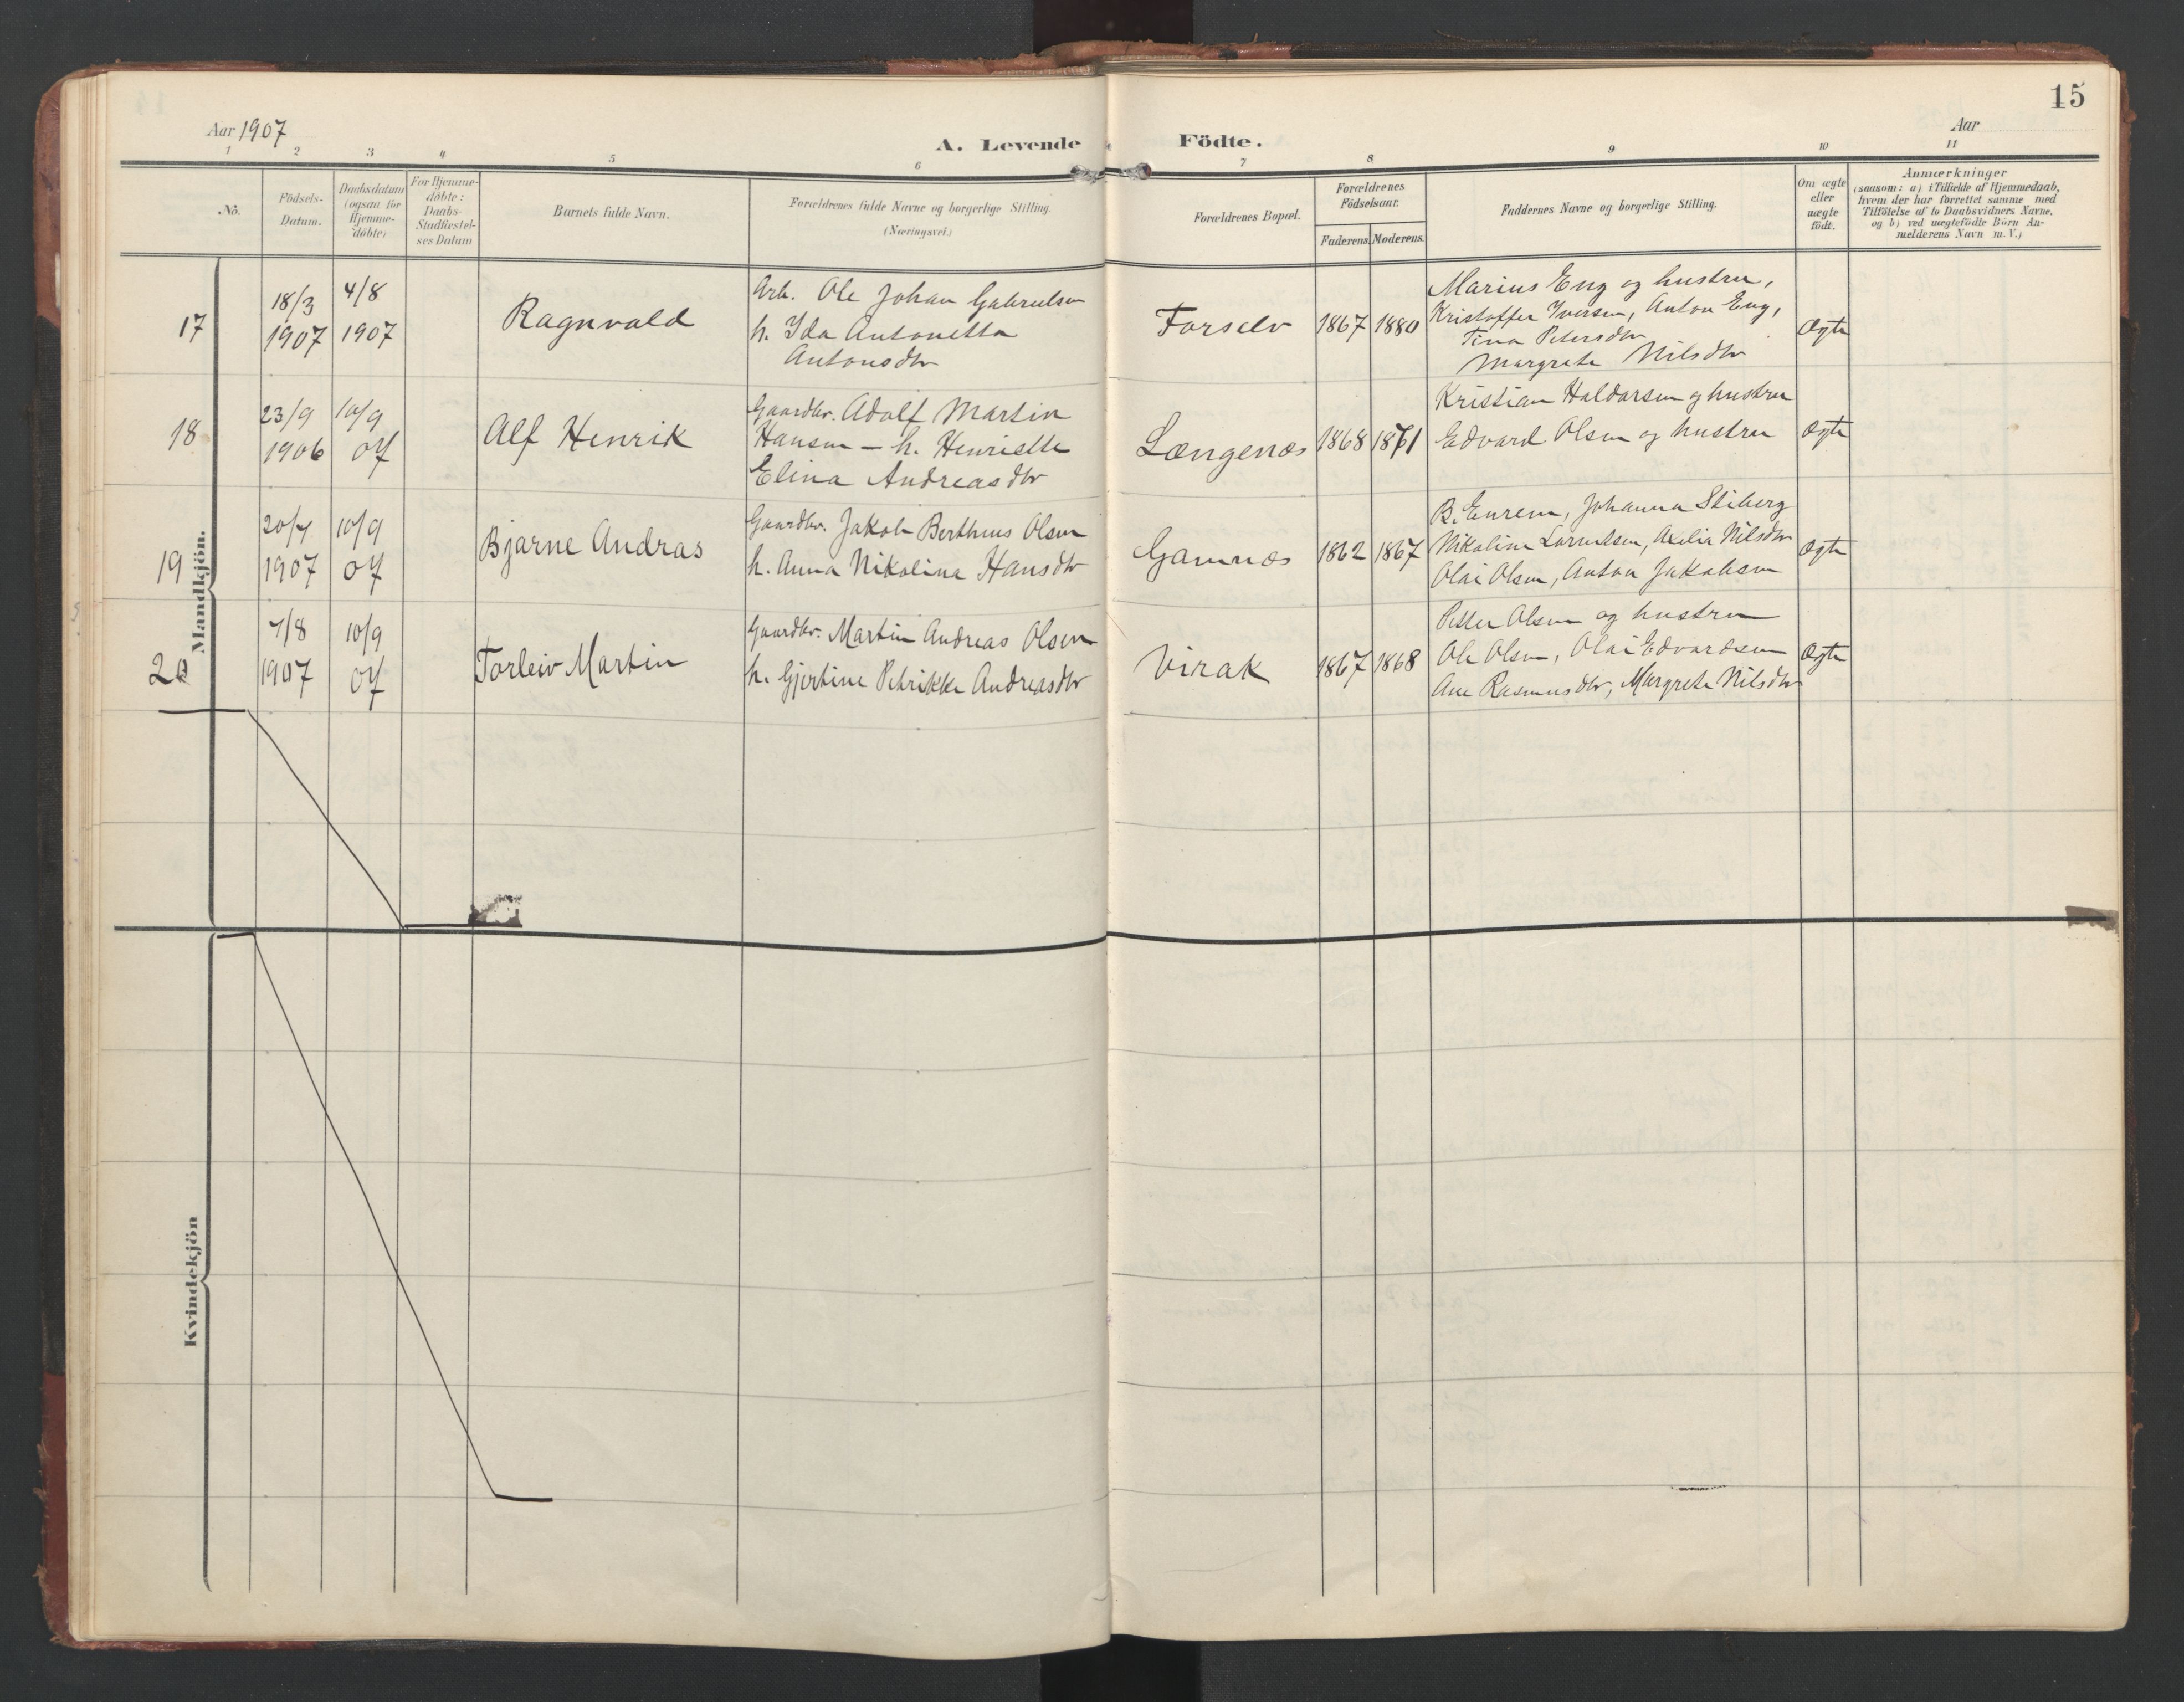 15
Aar 1907
A. Levende Födte.
Aar
1 2 3 4 5 6 7 8 9 10 11
No.
Födsels-
Datum.
Daabsdatum
(ogsaa for
Hjemme-
döbte)
For Hjemme-
döbte:
Daabs-
Stadfæstel-
ses Datum
Barnets fulde Navn.
Forældrenes fulde Navne og borgerlige Stilling.
(Næringsvei.)
Forældrenes Bopæl.
Forældrenes
Födselsaar.
Faderens.
Moderens.
Faddernes Navne og borgerlige Stilling.
Om ægte
eller
uægte
födt.
Anmærkninger
(saasom: a) i Tilfælde af Hjemmedaab,
hvem der har forrettet samme med
Tilföielse af to Daabsvidners Navne,
og b) ved uægtefödte Börn An-
melderens Navn m. V.)
Mandkjön.
17
18/3
1907
4/8
1907
Ragnvald
Arb. Ole Johan Gabrielsen
h. Ida Antonetta
Antonsdtr
Forselv
1867
1880
Marius Eng og hustru,
Kristoffer Iversen, Anton Eng,
Tina Petersdtr
Margrete Nilsdtr
Ægte
18
23/9
1906
10/9
07
Alf Henrik
Gaardbr. Adolf Martin
Hansen – h. Henriette
Elina Andreasdtr
Længenæs
1868
1861
Kristian Haldorsen og hustru
Edvard Olsen og hustru
Ægte
19
20/4
1907
10/9
07
Bjarne Andras
Gaardbr. Jakob Bertheus Olsen
h. Anna Nikolina Hansdtr
Gamnæs
1862
1867
B. Enrem, Johanna Stiberg
Nikoline Nilsdtr
Olai Olsen, Anton Jakobsen
Ægte
20
7/8
1907
10/9
07
Torleiv Martin
Gaardbr. Martin Andreas Olsen
h. Gjertine Petrikke Andreasdtr
Virak
1867
1868
Petter Olsen og hustru
Ole Olsen, Olai Edvardsen
Ane Rasmusdtr, Margrete Nilsdtr
Ægte
Kvindekjön